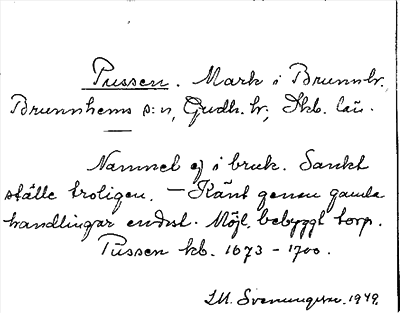 Pussen. Mark i Brunnhr.,
Brunnhems s:n, Gudh. hr, Skb. län.
Namnet ej i bruk. Sankt
ställe troligen. – Känt genom gamla
handlingar endast. Möjl. bebyggt torp.
Pussen kb. 1673 – 1700.
I.M. Svenungsson. 1949.